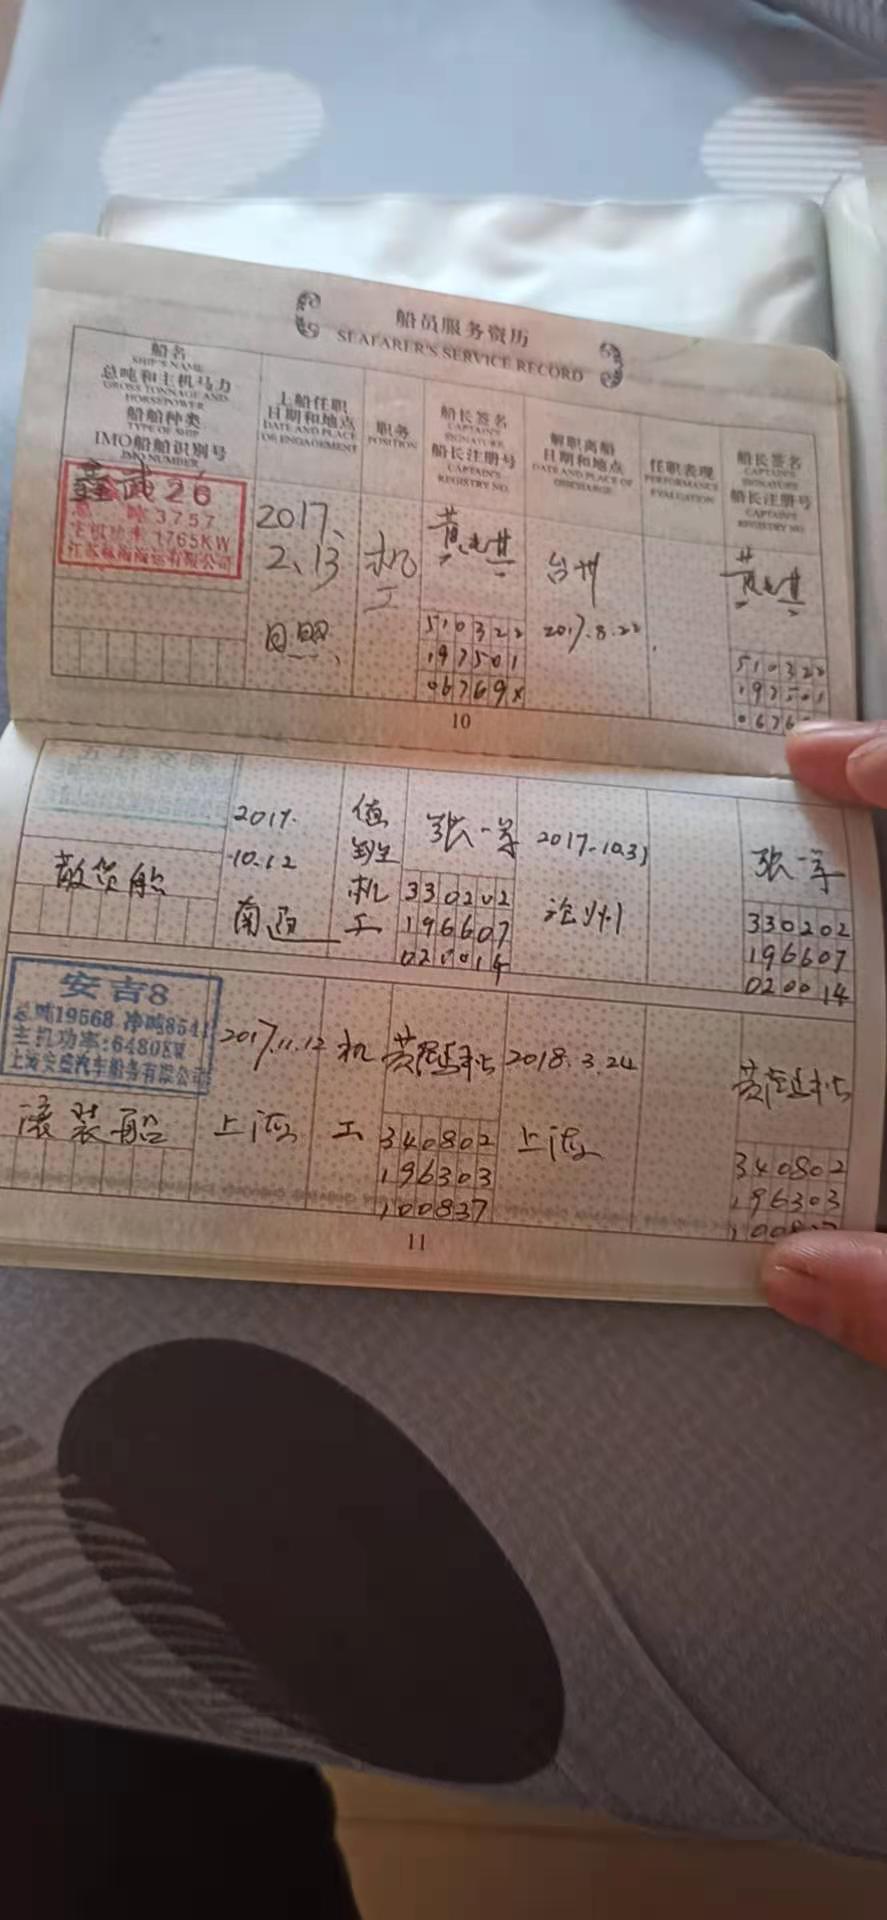 船员服务资历
SEAFARER'S SERVICE RECORD
船名
SHIP'S NAME
总吨和主机马力
GROSS TONNAGE AND
HORSEPOWER
船舶种类
TYPE OF SHIP
IMO船舶识别号
IMO NUMBER
上船任职
日期和地点
DATE AND PLACE
OF ENGAGEMENT
职务
POSITION
船长签名
CAPTAIN'S
SIGNATURE
船长注册号
CAPTAIN'S
REGISTRY NO.
解职离船
日期和地点
DATE AND PLACE OF
DISCHARGE
任职表现
PERFORMANCE
EVALUATION
船长签名
CAPTAIN'S
SIGNATURE
船长注册号
CAPTAIN'S
REGISTRY NO.
26
总吨3757
主机功率1765KW
海运有限公司
2017.
2.13
日照.
机
工
510322
197501
06769X
台州
2017.8.22
510322
197501
10
散货船
2017.
10.12
南通
值
班
机
工
张一军
330202
196607
020014
2017.10.31
沧州
张一军
330202
196607
020014
安吉8
总吨19568 净吨854
主机功率:6480KW
上海安盛汽车船务有限公司
滚装船
2017.11.12
上海
机
工
340802
196303
100837
2018.3.24
上海
340802
196303
11